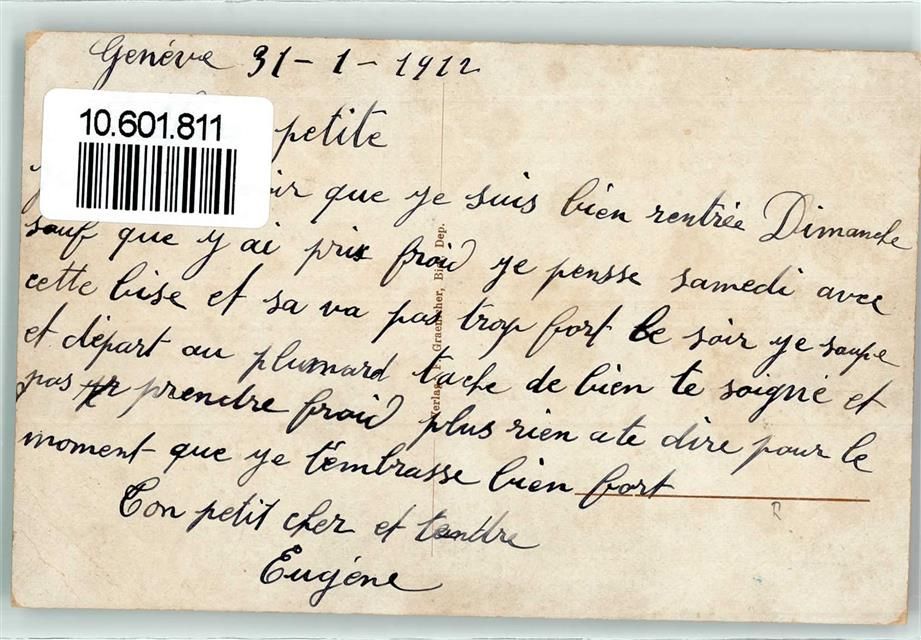 Genéve 31 - 1 - 1912
10.601.811
petite
que je suis bien rentrée Dimanche
sauf que j ai prix froid je pensse samedi avec
cette bise et sa va pas trop fort le soir je soupe
et départ au plumard tache de bien te soigné et
pas prendre froid plus rien a te dire pour le
moment que je t'embrasse bien fort
Ton petit cher et tendre
Eugène
Verlag Graenicher, Dep.